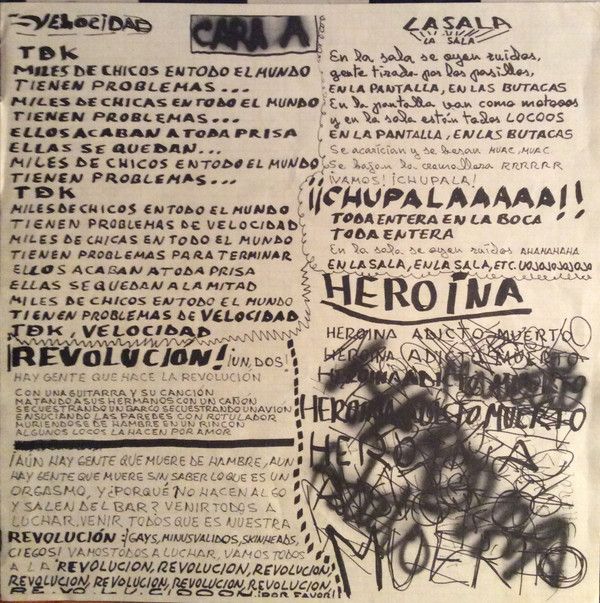 VELOCIDAD
CARA A
TDK
MILES DE CHICOS EN TODO EL MUNDO
TIENEN PROBLEMAS...
MILES DE CHICAS EN TODO EL MUNDO
TIENEN PROBLEMAS...
ELLOS ACABAN A TODA PRISA
ELLAS SE QUEDAN...
MILES DE CHICOS EN TODO EL MUNDO
TIENEN PROBLEMAS...
TDK
MILES DE CHICOS EN TODO EL MUNDO
TIENEN PROBLEMAS DE VELOCIDAD
MILES DE CHICAS EN TODO EL MUNDO
TIENEN PROBLEMAS PARA TERMINAR
ELLOS ACABAN A TODA PRISA
ELLAS SE QUEDAN A LA MITAD
MILES DE CHICOS EN TODO EL MUNDO
TIENEN PROBLEMAS DE VELOCIDAD
TDK, VELOCIDAD
REVOLUCIÓN! ¡UN, DOS!
HAY GENTE QUE HACE LA REVOLUCIÓN
CON UNA GUITARRA Y SU CANCIÓN
MATANDO A SUS HERMANOS CON UN CAÑON
SECUESTRANDO UN BARCO SECUESTRANDO UN AVION
ENSUCIANDO LAS PAREDES CON ROTULADOR
MURIENDOSE DE HAMBRE EN UN RINCÓN
ALGUNOS LOCOS LA HACEN POR AMOR
¡AÚN HAY GENTE QUE MUERE DE HAMBRE, AUN
HAY GENTE QUE MUERE SIN SABER LO QUE ES UN
ORGASMO, Y ¿PORQUÉ NO HACEN ALGO
Y SALEN DEL BAR? VENIR TODOS A
LUCHAR, VENIR TODOS QUE ES NUESTRA
REVOLUCIÓN :¡GAYS, MINUSVALIDOS, SKINHEADS,
CIEGOS! VAMOS TODOS A LUCHAR, VAMOS TODOS
A LA REVOLUCION, REVOLUCION, REVOLUCION!
REVOLUCION, REVOLUCION, REVOLUCION, REVOLUCION,
REVOLUCIOOON ¡POR FAVOR!
LA SALA
LA SALA
En la sala se oyen ruidos,
gente tirada por los pasillos,
EN LA PANTALLA, EN LAS BUTACAS
En la pantalla van como motooos
y en la sala están todos LOCOOS
EN LA PANTALLA, EN LAS BUTACAS
Se acarician y se besan MUAC, MUAC.
Se bajan la cremallera RRRRRR
¡VAMOS! ¡CHUPALA!
¡¡CHUPALAAAAA!!
TODA ENTERA EN LA BOCA
TODA ENTERA
En la sala se oyen ruidos AHAHAHAHA
EN LA SALA, EN LA SALA, ETC. UAJAJAJAJAJA
HEROÍNA
HEROINA ADICTO MUERTO
HEROINA ADICTO MUERTO
HEROINA ADICTO MUERTO
HEROINA ADICTO MUERTO
HEROINA
ADICTO
MUERTO